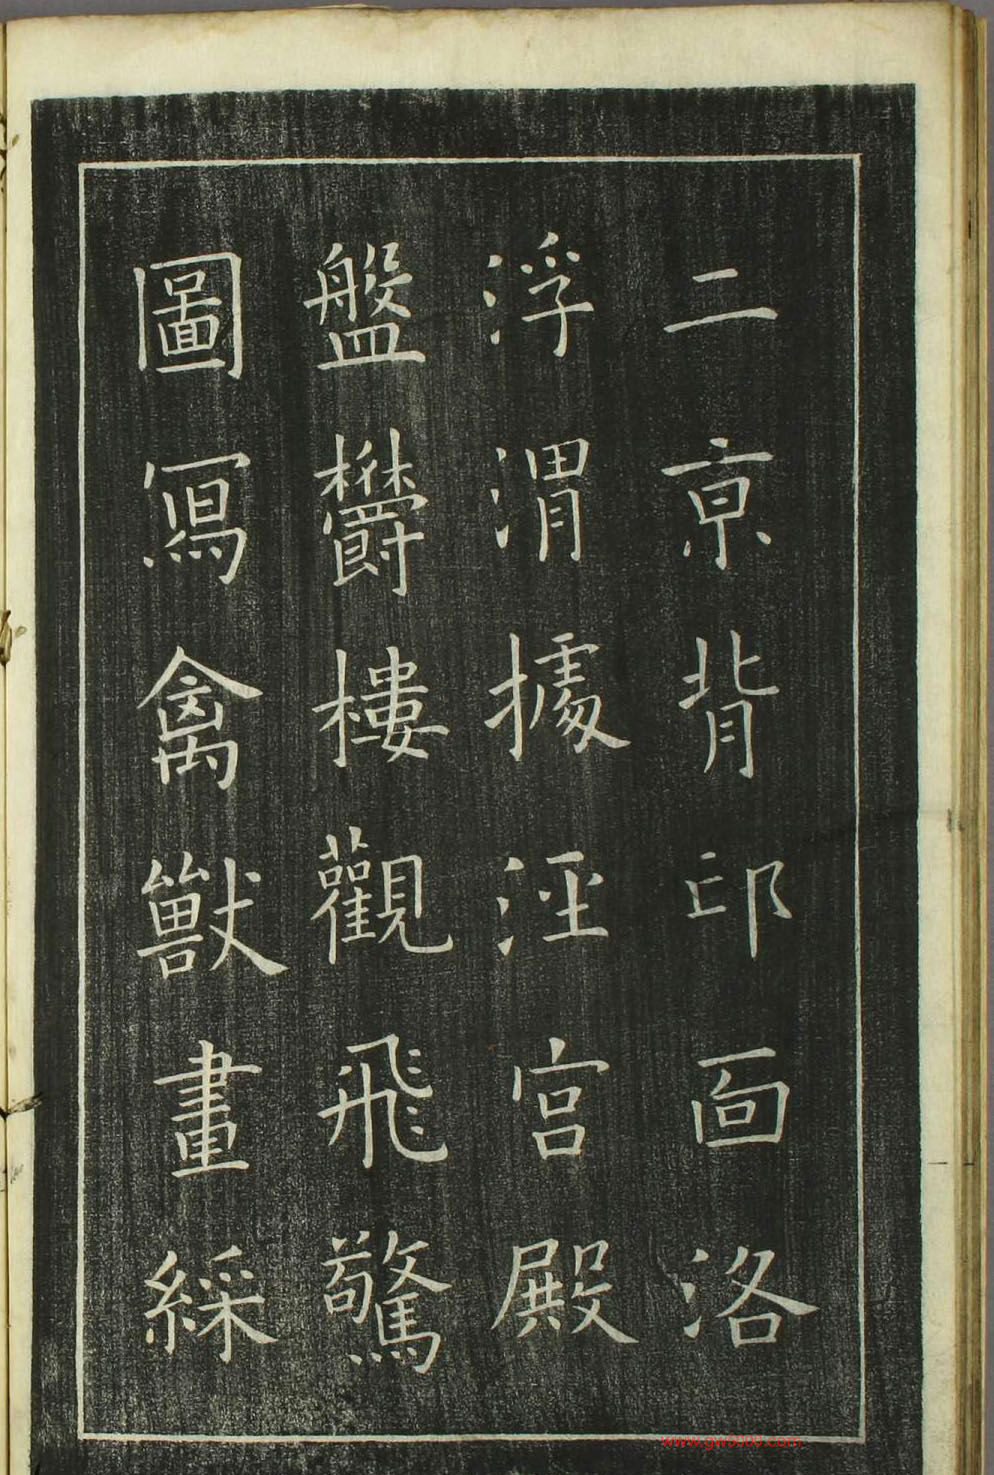 二京背邙面洛
浮渭據涇宮殿
盤欝樓觀飛驚
圖寫禽獸畫綵
www.gw5000.com